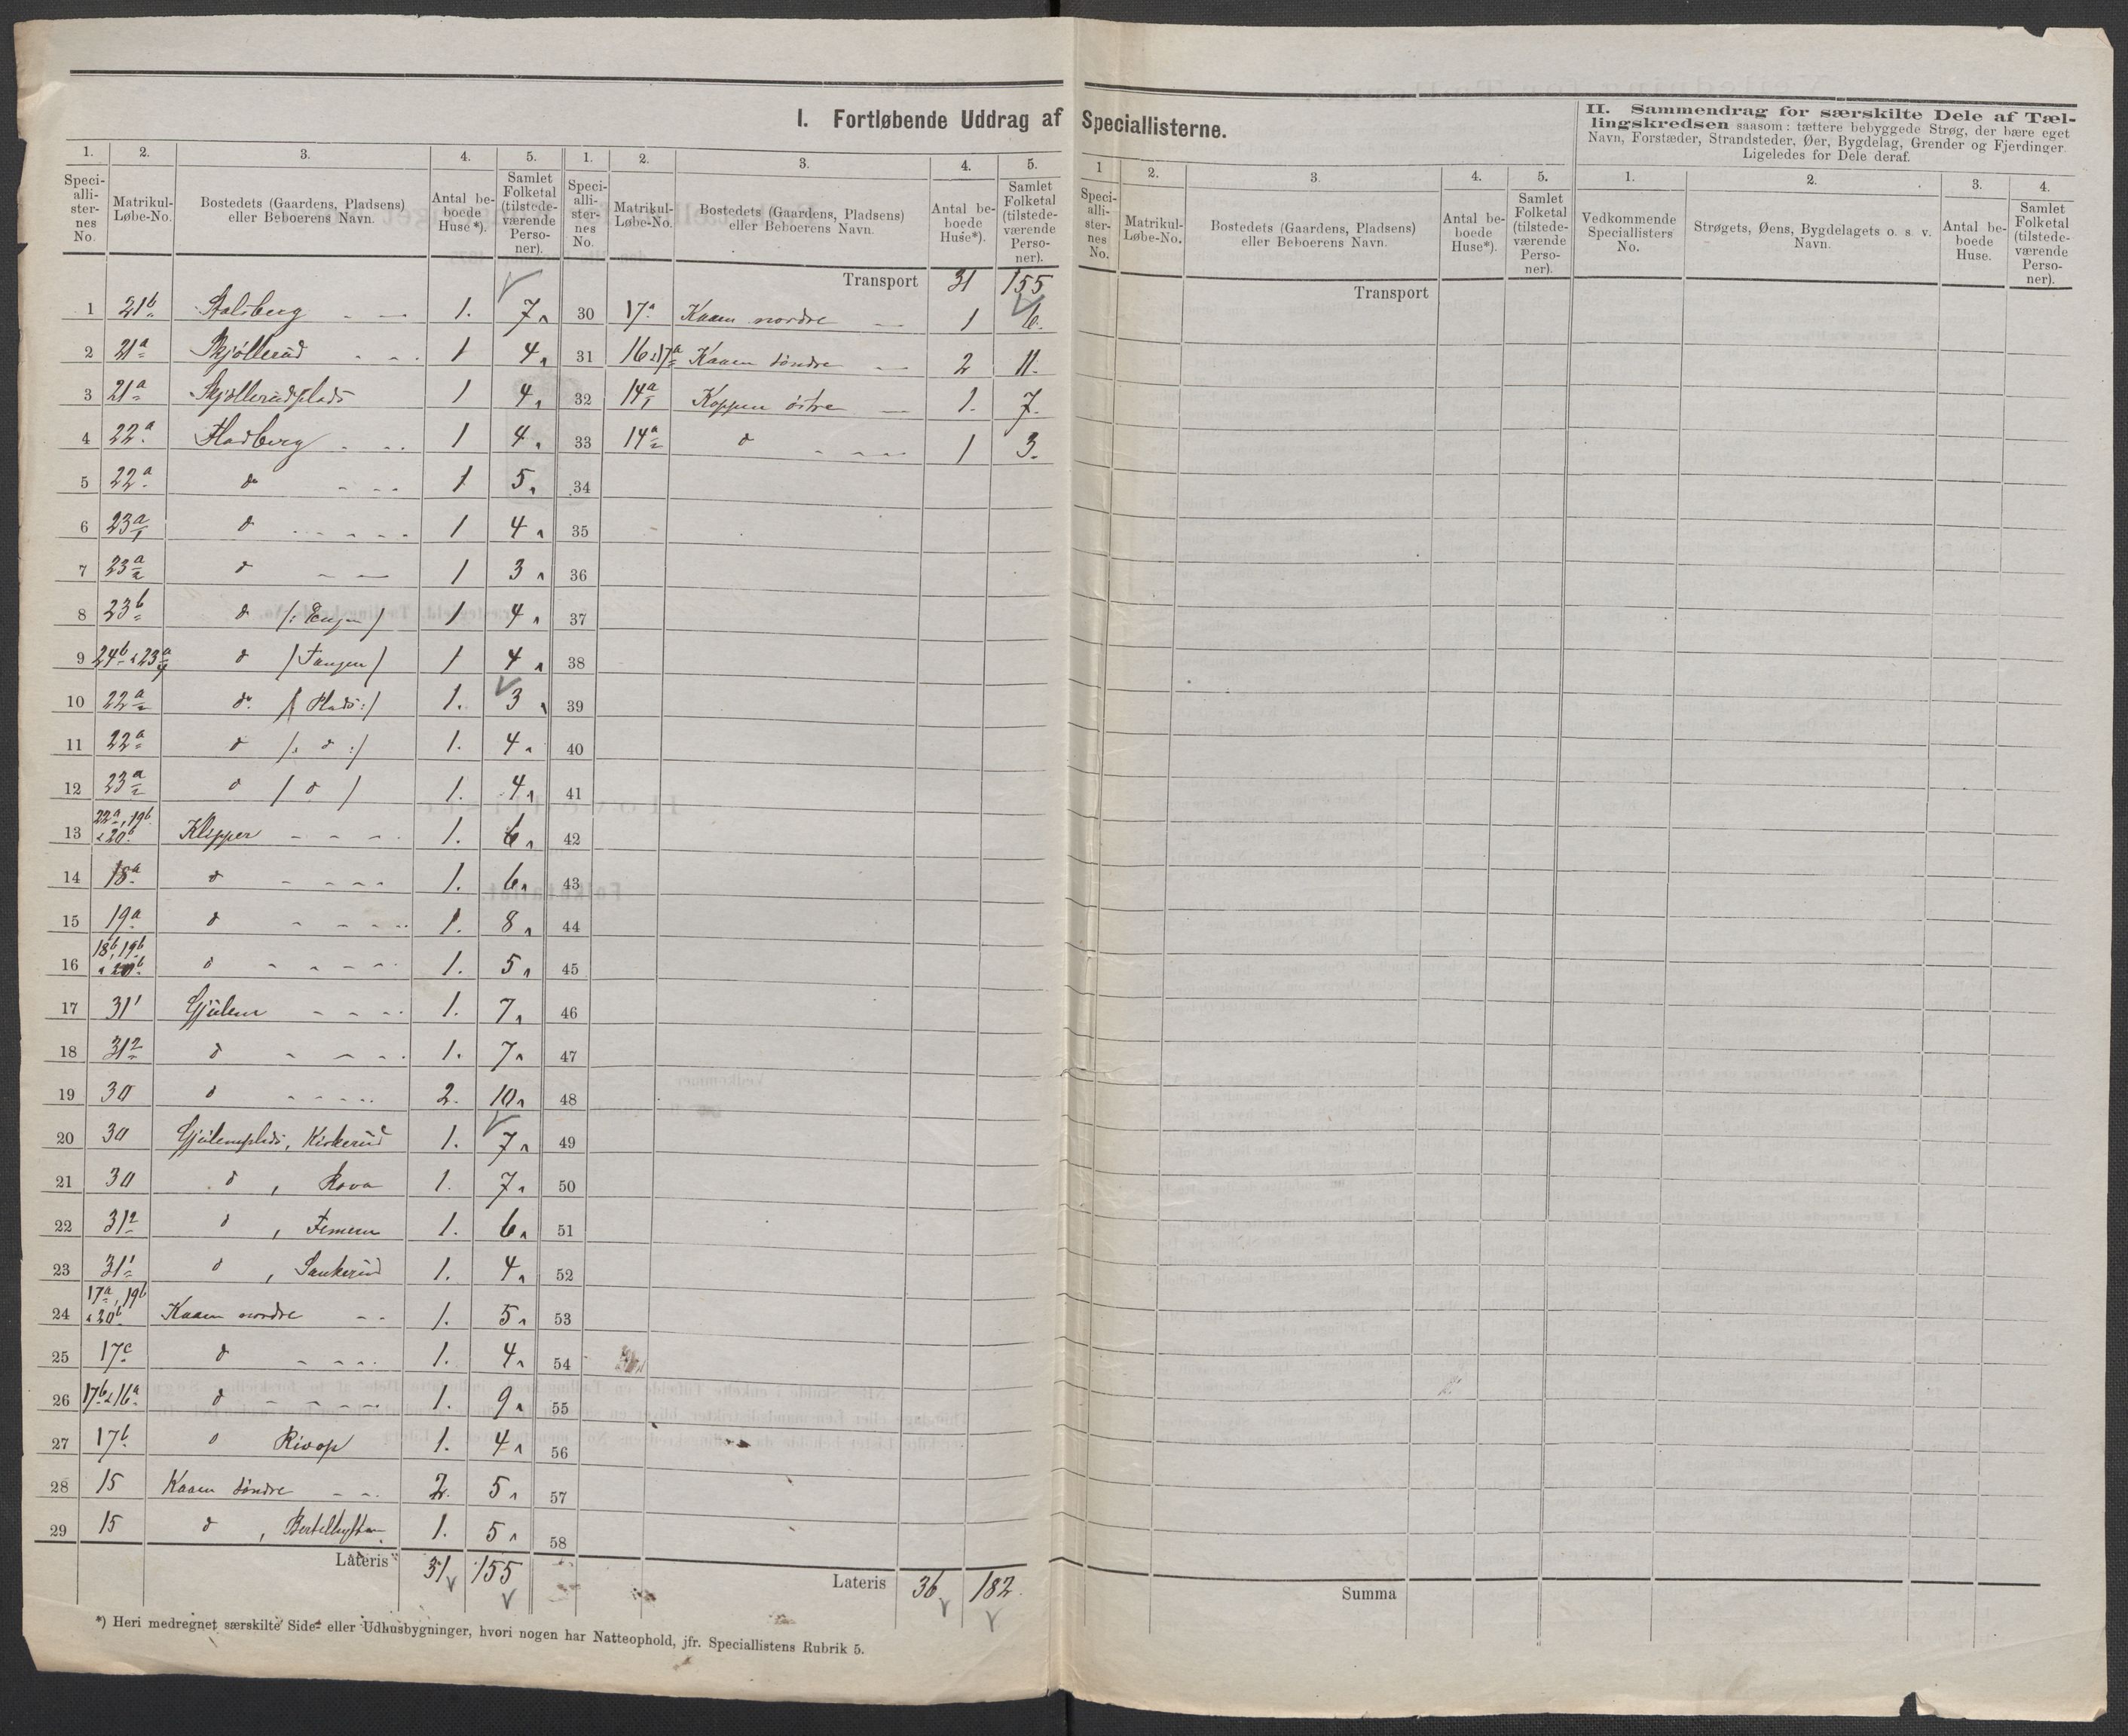 I. Fortløbende Uddrag af Speciallisterne.
1. 2. 3. 4. 5.
Speciallisternes No. Matrikul-Løbe-No. Bostedets (Gaardens, Pladsens) eller Beboerens Navn. Antal beboede Huse*). Samlet Folketal (tilstedeværende Personer).
1 21b Aalsberg 1. 7
2 21a Skjøllerud 1 4
3 21a Skjøllerudplads 1 4
4 22a Fladberg 1 4
5 22a do 1 5
6 23a/1 d 1 4
7 23a/2 d 1 3
8 23b d /: Engen / 1 4
9 24b & 23a d / Tangen / 1 4
10 22a do. /: Plads :/ 1. 3
11 22a d /: d :/ 1. 4
12 23a/2 d / d / 1. 4
13 22a, 19b & 20b Klepper 1. 6
14 18a d 1. 6
15 19a d 1. 8
16 18b, 19b & 20b d 1. 5
17 31¹ Gjulem 1. 7
18 31² d 1. 7
19 30 d 2. 10
20 30 Gjulemplads, Kirkerud 1. 7
21 30 d , Rova 1. 7
22 31² d , 1. 6
23 31¹ d , Sankerud 1. 4
24 17a, 19b & 20b Kaaen nordre 1. 5
25 17c d 1. 4
26 17b & 16a d 1. 9
27 17b d Rivop 1. 4
28 15 Kaaen søndre 2. 5
29 15 d , Bertelhytten 1. 5
Lateris 31 155
1. 2. 3. 4. 5.
Speciallisternes No. Matrikul-Løbe-No. Bostedets (Gaardens, Pladsens) eller Beboerens Navn. Antal beboede Huse*). Samlet Folketal (tilstedeværende Personer).
Transport 31 155
30 17a Kaaen nordre 1 6.
31 16 & 17a Kaaen søndre 2 11.
32 14a/1 Koppen østre 1. 7.
33 14a/2 d 1 3.
34
35
36
37
38
39
40
41
42
43
44
45
46
47
48
49
50
51
52
53
54
55
56
57
58
Lateris 36 182.
*) Heri medregnet særskilte Side- eller Udhusbygninger, hvori nogen har Natteophold, jfr. Speciallistens Rubrik 5.
1 2. 3. 4. 5.
Speciallisternes No. Matrikul-Løbe-No. Bostedets (Gaardens, Pladsens) eller Beboerens Navn. Antal beboede Huse*). Samlet Folketal (tilstedeværende Personer).
Transport
Summa
II. Sammendrag for særskilte Dele af Tæl-
lingskredsen saasom: tættere bebyggede Strøg, der bære eget
Navn, Forstæder, Strandsteder, Øer, Bygdelag, Grender og Fjerdinger.
Ligeledes for Dele deraf.
1. 2. 3. 4.
Vedkommende Speciallisters No. Strøgets, Øens, Bygdelagets o. s. v. Navn. Antal beboede Huse. Samlet Folketal (tilstedeværende Personer).